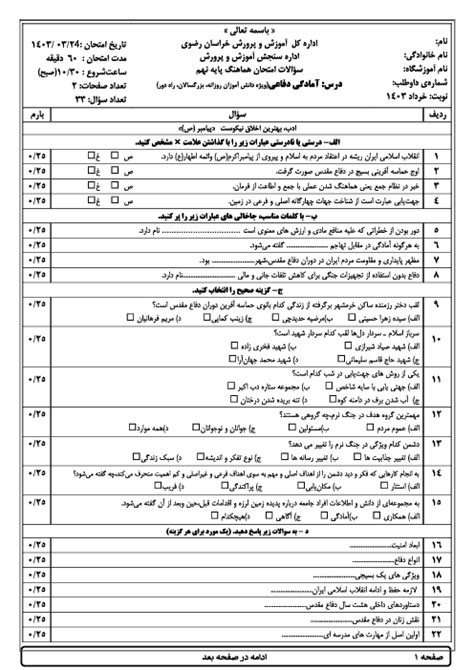 « باسمه تعالی »
نام:
نام خانوادگی:
نام آموزشگاه:
شماره‌ی داوطلب:
نوبت: خرداد ۱۴۰۳
اداره کل آموزش و پرورش خراسان رضوی
اداره سنجش آموزش و پرورش
سؤالات امتحان هماهنگ پایه نهم
درس: آمادگی دفاعی(ویژه دانش آموزان روزانه، بزرگسالان، راه دور)
تاریخ امتحان: ۱۴۰۳/۰۳/24
مدت امتحان: ۶۰ دقیقه
ساعت‌شروع : ۱۰/۳۰(صبح)
تعداد صفحات: ۲
تعداد سؤال: ۳۳
ردیف سؤال بارم
ادب، بهترین اخلاق نیکوست «پیامبر (ص)»
الف- درستی یا نادرستی عبارات زیر را با گذاشتن علامت × مشخص کنید.
۱ انقلاب اسلامی ایران ریشه در اعتقاد مردم به اسلام و پیروی از پیامبراکرم(ص) وائمه اطهار(ع) دارد. ص □ غ □ ۰/۲۵
۲ اوج حماسه آفرینی بسیج در دفاع مقدس صورت گرفت. ص □ غ □ ۰/۲۵
۳ خبر در نظام جمع یعنی هماهنگ شدن عملی با جمع و اطاعت از فرمان. ص □ غ □ ۰/۲۵
۴ جهت‌یابی عبارت است از شناخت جهات چهارگانه اصلی و فرعی در زمین. ص □ غ □ ۰/۲۵
ب- با کلمات مناسب، جاخالی های عبارات زیر را پر کنید.
۵ دور بودن از خطراتی که علیه منافع مادی و ارزش های معنوی است ................ نام دارد. ۰/۲۵
۶ به هرگونه آمادگی در مقابل تهاجم ................ گفته می‌شود. ۰/۲۵
۷ مظهر پایداری و مقاومت مردم ایران در دوران دفاع مقدس،شهر................ بود. ۰/۲۵
۸ دفاع بدون استفاده از تجهیزات جنگی برای کاهش تلفات جانی و مالی ................نام دارد. ۰/۲۵
ج- گزینه صحیح را انتخاب کنید.
۹ لقب دختر رزمنده ساکن خرمشهر برگرفته از زندگی کدام بانوی حماسه آفرین دوران دفاع مقدس است؟ ۰/۲۵
الف) سیده زهرا حسینی □ ب)مرضیه حدیدچی □ ج) زینب کمایی□ د) مریم فرهانیان □
۱۰ سرباز اسلام ـ سردار دل‌ها لقب کدام سردار شهید است؟ ۰/۲۵
الف) شهید صیاد شیرازی □ ب) شهید فخری زاده □
ج) شهید حاج قاسم سلیمانی□ د) شهید محمد جهان‌آرا□
۱۱ یکی از روش های جهت‌یابی در شب کدام است؟ ۰/۲۵
الف) جهتی یابی با سایه شاخص □ ب) مجموعه ستاره دب اکبر □
ج) آب شدن برف در دامنه کوه□ د) تنه بریده شدن درختان □
۱۲ مهمترین گروه هدف در جنگ نرم،چه گروهی هستند؟ ۰/۲۵
الف) عموم مردم □ ب)مسئولین □ ج) جوانان و نوجوانان □ د)همه موارد□
۱۳ دشمن کدام ویژگی در جنگ نرم را تغییر می دهد؟ ۰/۲۵
الف) تغییر جذابیت ها □ ب) تغییر رسانه ها □ ج) نوع تفکر و اندیشه□ د) سبک زندگی□
۱۴ به انجام کارهایی که فکر و دید دشمن را از اهداف اصلی و مهم به سوی اهداف فرعی و غیراصلی و کم اهمیت منحرف می‌کند،چه گفته می‌شود؟ ۰/۲۵
الف) استتار □ ب) مکان‌یابی□ ج) پراکندگی□ د) فریب□
۱۵ به مجموعه‌ای از دانش و اطلاعات افراد جامعه درباره پدیده زمین لرزه و اقدامات قبل،حین وبعد از آن گفته می‌شود. ۰/۲۵
الف) همکاری □ ب)آمادگی □ ج) آگاهی □ د)هیچکدام □
د - به سوالات زیر پاسخ دهید. (یک مورد برای هر گزینه)
۱۶ ابعاد امنیت................ ۰/۲۵
۱۷ انواع دفاع................ ۰/۲۵
۱۸ ویژگی های یک بسیجی................ ۰/۲۵
۱۹ لازمه حفظ و ادامه انقلاب اسلامی ایران................ ۰/۲۵
۲۰ دستاوردهای داخلی هشت سال دفاع مقدس................ ۰/۲۵
۲۱ نقش زنان در دفاع مقدس................ ۰/۲۵
۲۲ اولین اصل از مهارت های مدرسه ای................ ۰/۲۵
صفحه ۱ ادامه در صفحه بعد